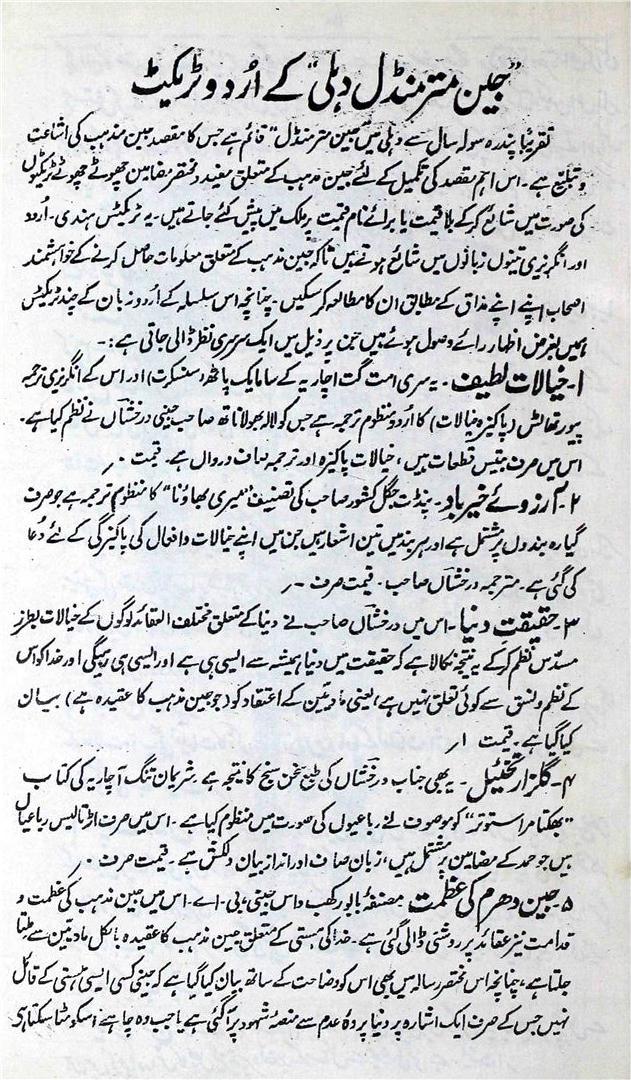 "جین متر منڈل دہلی" کے اُردو ٹریکٹ
تقریباً پندرہ سولہ سال سے دہلی میں "جین متر منڈل" قائم ہے جس کا مقصد جین مذہب کی اشاعت
و تبلیغ ہے۔ اس اہم مقصد کی تکمیل کے لئے جین مذہب کے متعلق مفید و مختصر مضامین چھوٹے چھوٹے ٹریکٹوں
کی صورت میں شائع کرکے بلا قیمت یا برائے نام قیمت پر ملک میں پیش کئے جاتے ہیں۔ یہ ٹریکٹس ہندی۔ اُردو
اور انگریزی تینوں زبانوں میں شائع ہوتے ہیں تاکہ جین مذہب کے متعلق معلومات حاصل کرنے کے خواہشمند
اصحاب اپنے اپنے مذاق کے مطابق ان کا مطالعہ کرسکیں۔ چنانچہ اس سلسلہ کے اُردو زبان کے چند ٹریکٹس
ہمیں بغرض اظہار رائے وصول ہوئے ہیں جن پر ذیل میں ایک سرسری نظر ڈالی جاتی ہے:۔
۱۔ خیالات لطیف۔ یہ سری امت گت اچاریہ کے سامایک پاٹھ (سنسکرت) اور اس کے انگریزی ترجمہ
پیور تھاٹس (پاکیزہ خیالات) کا اُردو منظوم ترجمہ ہے جس کو لالہ بھولا ناتھ صاحب جینی درخشاں نے نظم کیا ہے۔
اس میں صرف بتیس قطعات ہیں، خیالات پاکیزہ اور ترجمہ صاف و رواں ہے۔ قیمت ۰ ؍
۲۔ آرزوئے خیرباد۔ پنڈت جگل کشور صاحب کی تصنیف "میری بھاؤنا" کا منظوم ترجمہ ہے جو صرف
گیارہ بندوں پر مشتمل ہے اور ہر بند میں تین اشعار ہیں جن میں اپنے خیالات و افعال کی پاکیزگی کے لئے دُعا
کی گئی ہے۔ مترجمہ درخشاں صاحب۔ قیمت صرف ۔ ؍
۳۔ حقیقت دنیا۔ اس میں درخشاں صاحب نے دنیا کے متعلق مختلف العقائد لوگوں کے خیالات بطرز
مسدس نظم کرکے یہ نتیجہ نکالا ہے کہ حقیقت میں دنیا ہمیشہ سے ایسی ہی ہے اور ایسی ہی رہیگی اور خدا کو اس
کے نظم و نسق سے کوئی تعلق نہیں ہے، یعنی مادیین کے اعتقاد کو (جو جین مذہب کا عقیدہ ہے) بیان
کیا گیا ہے۔ قیمت ۱؍
۴۔ گلزار تخئیل۔ یہ بھی جناب درخشاں کی طبع سخن سنج کا نتیجہ ہے۔ شریمان تنگ آچاریہ کی کتاب
"بھکتا مر استوتر" کو موصوف نے رباعیوں کی صورت میں منظوم کیا ہے۔ اس میں صرف اڑتالیس رباعیاں
ہیں جو حمد کے مضامین پر مشتمل ہیں، زبان صاف اور انداز بیان دلکش ہے۔ قیمت صرف ۰ ؍
۵۔ جین دھرم کی عظمت۔ مصنفہٴ بابو رکھب داس جینی، بی۔ اے۔ اس میں جین مذہب کی عظمت و
قدامت نیز عقائد پر روشنی ڈالی گئی ہے۔ خدا کی ہستی کے متعلق جین مذہب کا عقیدہ بالکل مادیین سے ملتا
جلتا ہے، چنانچہ اس مختصر رسالہ میں بھی اس کو وضاحت کے ساتھ بیان کیا گیا ہے کہ جینی کسی ایسی ہستی کے قائل
نہیں جس کے صرف ایک اشارہ پر دنیا پردۂ عدم سے منصۂ شہود پر آگئی ہے یا جب وہ چاہے اسکو مٹا سکتا ہی